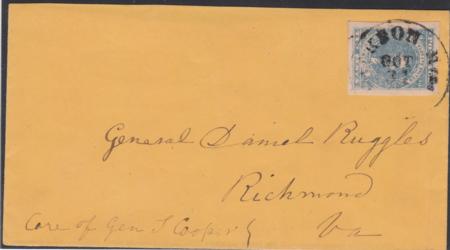 KSON MISS
OCT
General Daniel Ruggles
Richmond
Care of Gen S Cooper
Va